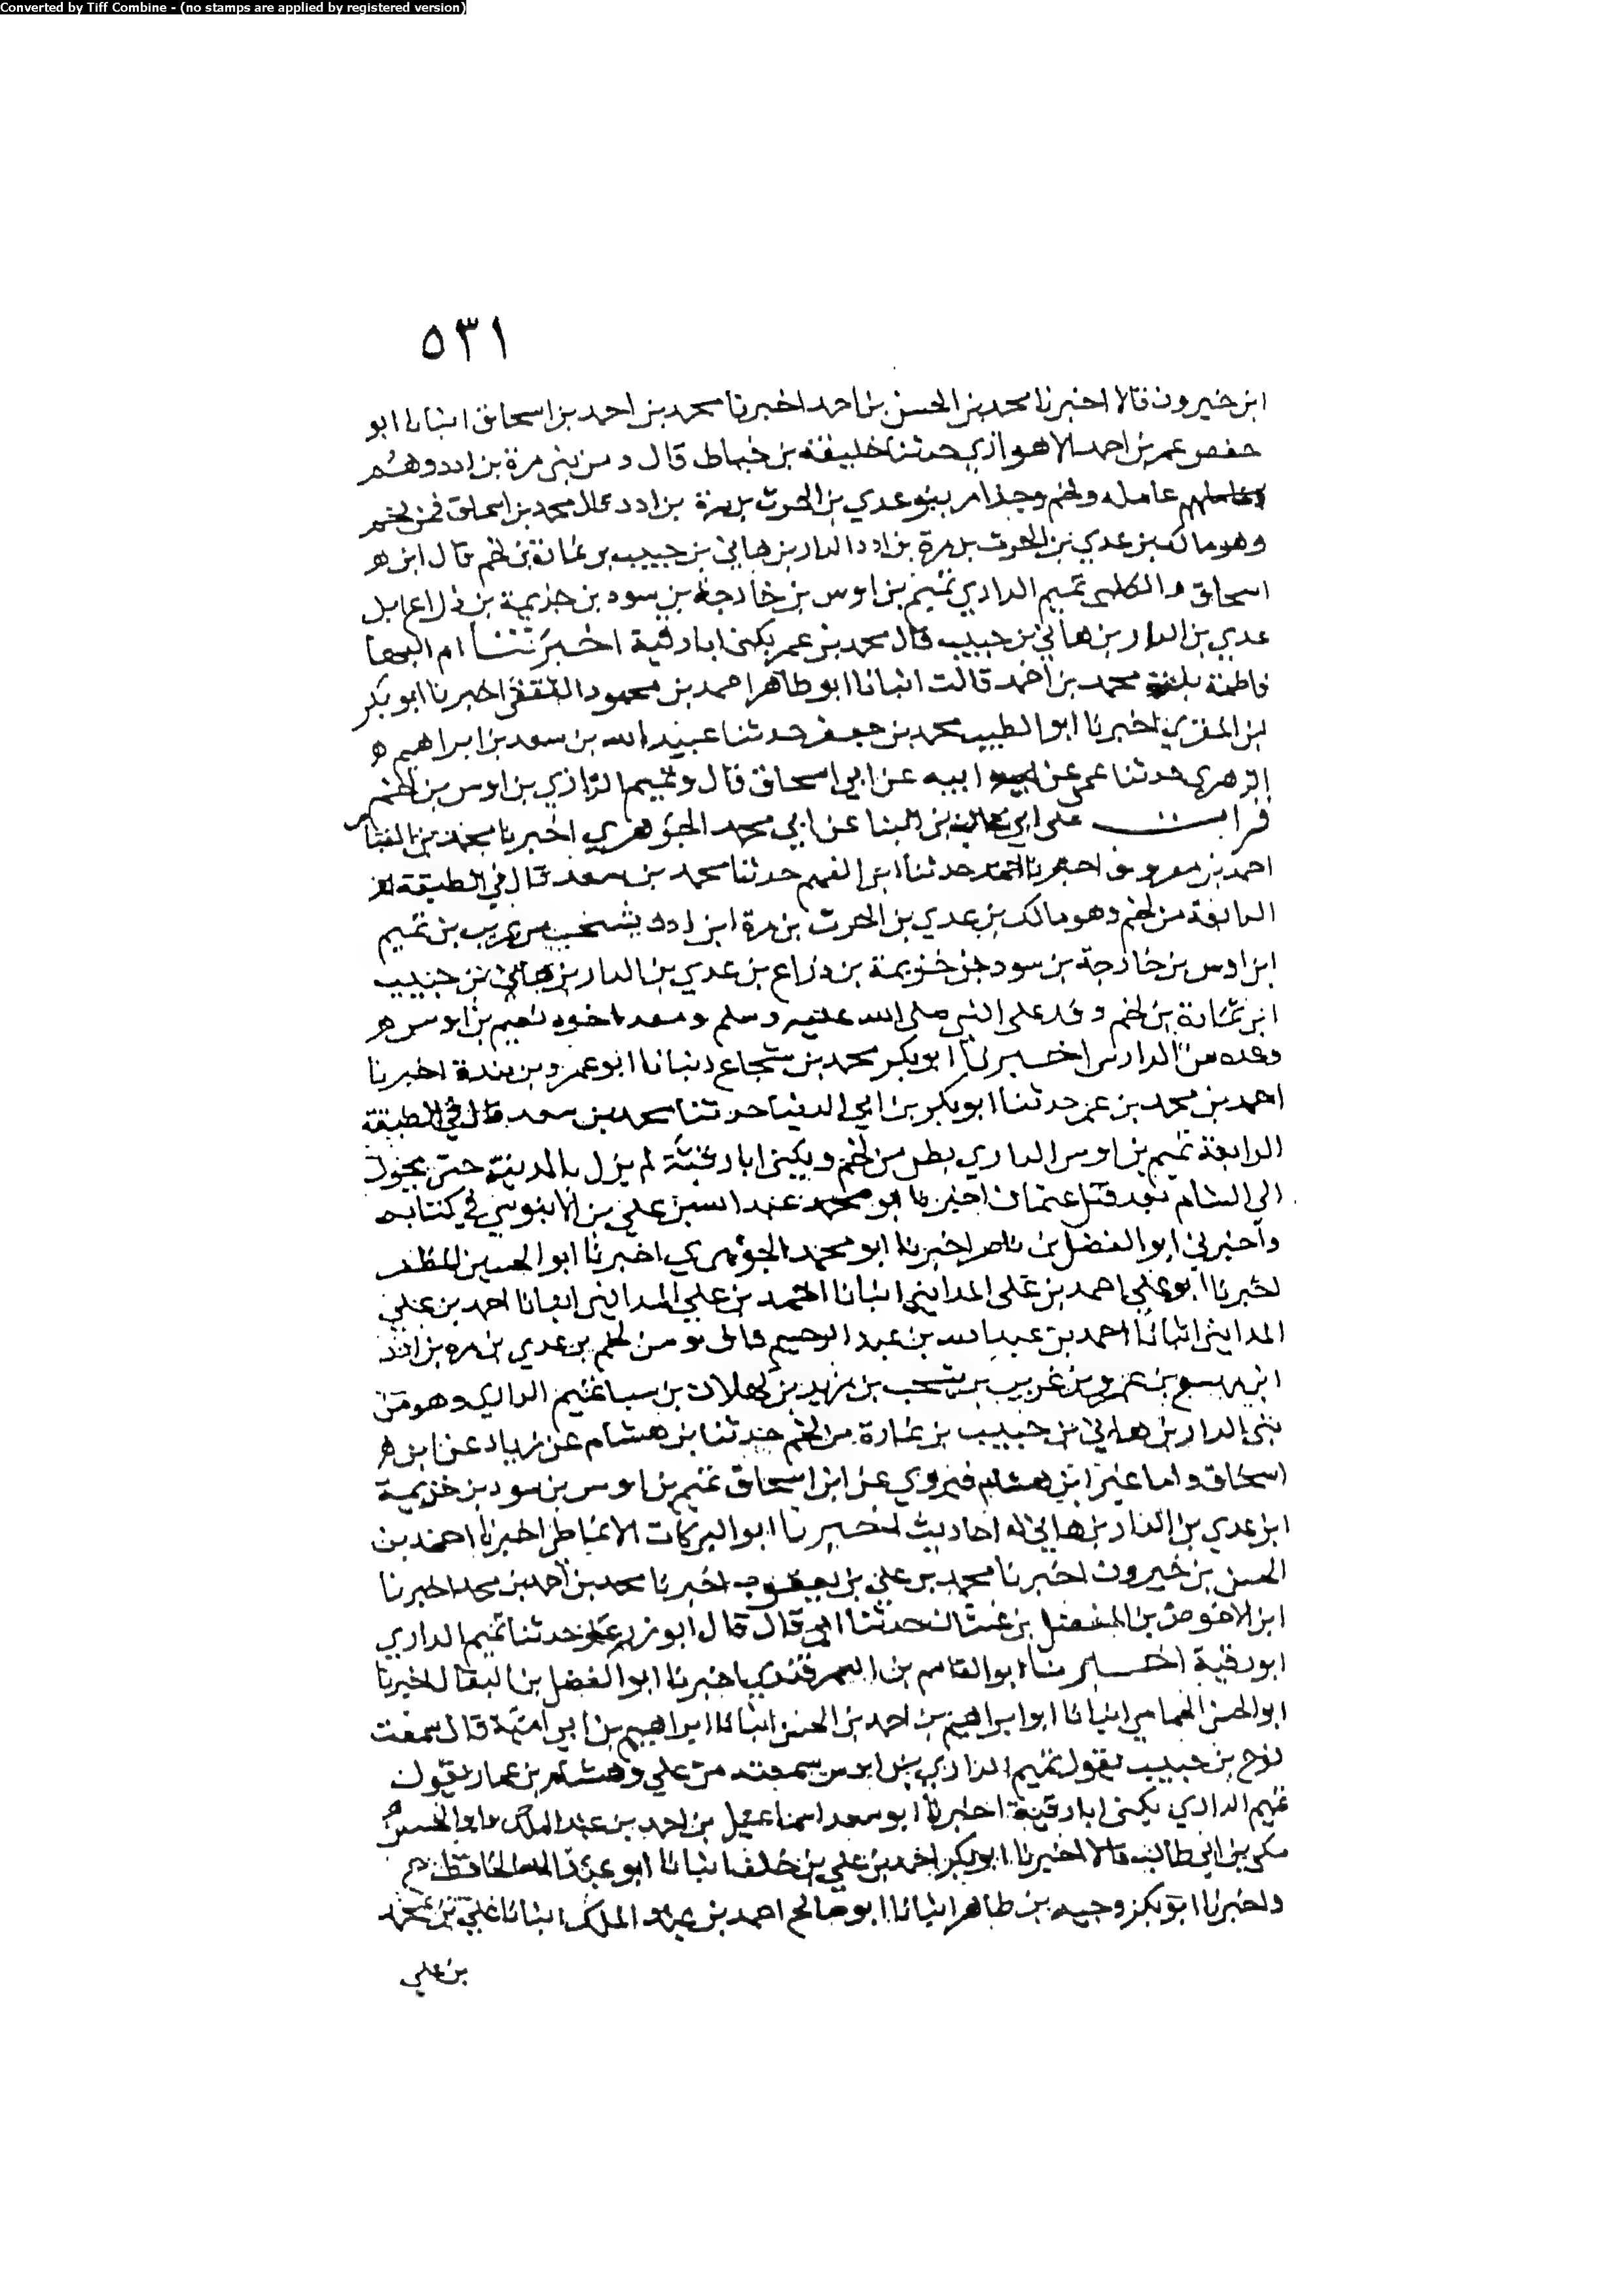 Converted by Tiff Combine - (no stamps are applied by registered version)
٥٣١
ابن خيرون قالا اخبرنا محمد بن الحسن بن احمد اخبرنا محمد بن احمد بن اسحاق انبانا ابو
حفص عمر بن احمد الاهوازي حدثنا خليفة بن خياط قال ومن بني مرة بن ادد وهم
عاملة ولخم وجذام بنو عدي بن الحرث بن مرة بن ادد قال محمد بن اسحاق فمن لخم
وهو مالك بن عدي بن الحرث بن مرة بن ادد الدار بن هاني بن حبيب بن نمارة بن لخم قال ابن
اسحاق والكلبي تميم الداري تميم بن اوس بن خارجة بن سود بن جذيمة بن ذراع
عدي بن الدار بن هاني بن حبيب قال محمد بن عمر يكنى ابا رقية اخبرتنا ام البها
فاطمة بنت محمد بن احمد قالت انبانا ابو طاهر احمد بن محمود الثقفي اخبرنا ابو بكر
بن المقري اخبرنا ابو الطيب محمد بن جعفر حدثنا عبيد الله بن سعد بن ابراهيم
الزهري حدثنا عمي عن ابيه عن ابي اسحاق قال وتميم الداري بن اوس بن لخم
قرات على ابي غالب بن البنا عن ابي محمد الجوهري اخبرنا محمد بن العباس
احمد بن معروف اخبرنا حدثنا ابن الفهم حدثنا محمد بن سعد قال في الطبقة
الرابعة من لخم وهو مالك بن عدي بن الحرث بن مرة ابن ادد بن يشحب بن عريب بن تميم
ابن اوس بن خارجة بن سود بن خزيمة بن دراع بن عدي بن الدار بن هاني بن حبيب
ابن نمارة بن لخم وفد على النبي صلى الله عليه وسلم ومعه اخوه نعيم بن اوس
وعده من الدارين اخبرنا ابو بكر محمد بن شجاع انبانا ابو عمرو بن مندة اخبرنا
احمد بن محمد بن عمر حدثنا ابو بكر بن ابي الدنيا حدثنا محمد بن سعد قال في الطبقة
الرابعة تميم بن اوس الداري بطن من لخم ويكنى ابا رقية لم يزل بالمدينة حتى تحول
الى الشام بعد قتل عثمان اخبرنا ابو محمد عبد الله بن علي بن الابنوسي في كتابه
واخبرني ابو الفضل بن ناصر اخبرنا ابو محمد الجوهري اخبرنا ابو الحسين المظفر
اخبرنا ابو علي احمد بن علي المدايني انبانا احمد بن علي المدايني انبانا احمد بن علي
المدايني انبانا احمد بن عبد الله بن عبد الرحيم قال ومن لخم بن عدي بن مره بن ادد
ابن يسع بن عمرو بن غريب بن يشحب بن زيد بن كهلان بن سبا تميم الداري وهو من
بني الدار بن هاني بن حبيب بن نمارة بن لخم حدثنا بن هشام عن زياد عن ابن
اسحاق واما غير ابن هشام فيروي عن ابن اسحاق تميم بن اوس بن سود بن خزيمة
ابن عدي بن الدار بن هاني له احاديث اخبرنا ابو البركات الانماطي اخبرنا احمد بن
الحسن بن خيرون اخبرنا محمد بن علي بن يعقوب اخبرنا محمد بن احمد بن محمد اخبرنا
ابن الاحوص بن المفضل بن غسان حدثنا ابي قال قال ابو زرعة حدثنا تميم الداري
ابو رقية اخبرنا ابو القاسم بن السمرقندي اخبرنا ابو الفضل بن البقال اخبرنا
ابو الحسن الحمامي انبانا ابو ابراهيم بن احمد بن الحسن انبانا ابراهيم بن ابي امية قال سمعت
نوح بن حبيب يقول تميم الداري بن اوس سمعت من علي وهشام بن عمار يقول
تميم الداري يكنى ابا رقية اخبرنا ابو سعد اسماعيل بن احمد بن عبد الملك وابو الحسن
مكي بن ابي طالب قالا اخبرنا ابو بكر احمد بن علي بن خلف انبانا ابو عبد الله الحافظ ح
واخبرنا ابو بكر وجيه بن طاهر انبانا ابو صالح احمد بن عبد الملك انبانا علي بن محمد
بن علي